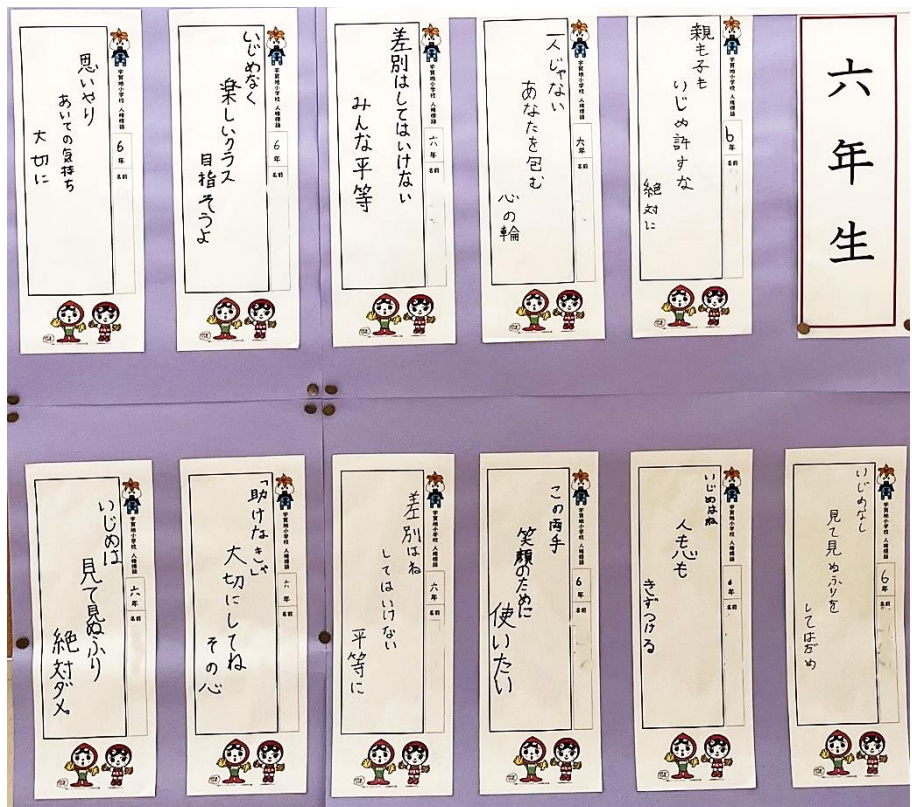 六年生
宇賀地小学校 人権標語
6年 名前
親も子も
いじめ許すな
絶対に
宇賀地小学校 人権標語
六年 名前
一人じゃない
あなたを包む
心の輪
宇賀地小学校 人権標語
六年 名前
差別はしてはいけない
みんな平等
宇賀地小学校 人権標語
6年 名前
いじめなく
楽しいクラス
目指そうよ
宇賀地小学校 人権標語
6年 名前
思いやり
あいての気持ち
大切に
宇賀地小学校 人権標語
6年 名前
いじめなし
見て見ぬふりを
してはだめ
宇賀地小学校 人権標語
6年 名前
いじめはね
人も心も
きずつける
宇賀地小学校 人権標語
6年 名前
この両手
笑顔のために
使いたい
宇賀地小学校 人権標語
六年 名前
差別はね
してはいけない
平等に
宇賀地小学校 人権標語
六年 名前
「助けなきゃ」
大切にしてね
その心
宇賀地小学校 人権標語
六年 名前
いじめは
見て見ぬふり
絶対ダメ